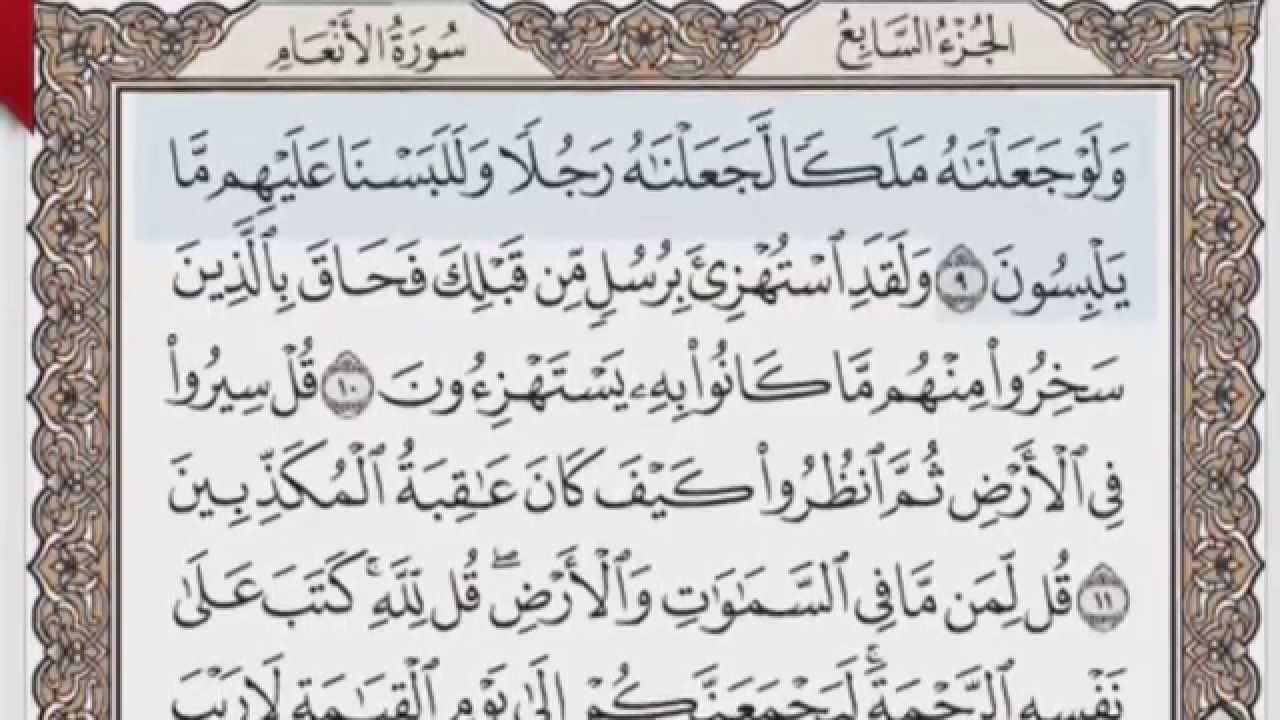 الجُزْءُ السَّابِعُ
سُورَةُ الأَنْعَامِ
وَلَوْ جَعَلْنَٰهُ مَلَكًا لَّجَعَلْنَٰهُ رَجُلًا وَلَلَبَسْنَا عَلَيْهِم مَّا
يَلْبِسُونَ ٩ وَلَقَدِ ٱسْتُهْزِئَ بِرُسُلٍ مِّن قَبْلِكَ فَحَاقَ بِٱلَّذِينَ
سَخِرُوا۟ مِنْهُم مَّا كَانُوا۟ بِهِۦ يَسْتَهْزِءُونَ ١٠ قُلْ سِيرُوا۟
فِى ٱلْأَرْضِ ثُمَّ ٱنظُرُوا۟ كَيْفَ كَانَ عَٰقِبَةُ ٱلْمُكَذِّبِينَ
١١ قُل لِّمَن مَّا فِى ٱلسَّمَٰوَٰتِ وَٱلْأَرْضِ ۖ قُل لِّلَّهِ ۚ كَتَبَ عَلَىٰ
نَفْسِهِ ٱلرَّحْمَةَ ۚ لَيَجْمَعَنَّكُمْ إِلَىٰ يَوْمِ ٱلْقِيَٰمَةِ لَا رَيْبَ